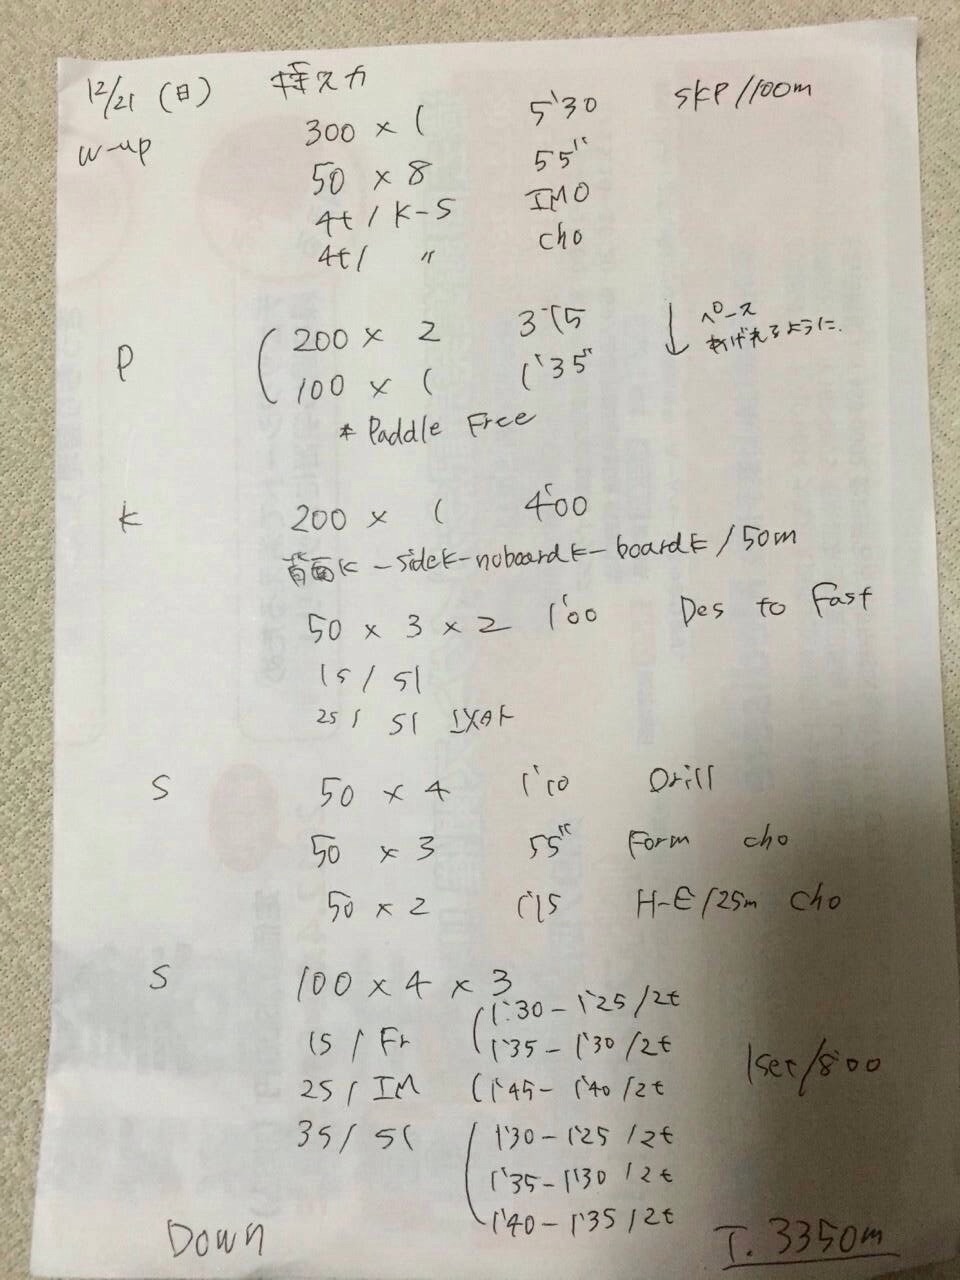 12/21 (日) 持久力
W-up 300 × 1 5'30 SKP/100m
50 × 8 55"
4t / K-S IMO
4t / 〃 cho
P 200 × 2 3'15 ↓ ペース
100 × 1 1'35" あげれるように.
* Paddle Free
K 200 × 1 4'00
背面K - sideK - noboardK - boardK / 50m
50 × 3 × 2 1'00 Des to Fast
1S / S1
2S / S1
S 50 × 4 1'10 Drill
50 × 3 55" Form cho
50 × 2 1'15 H-E/25m cho
S 100 × 4 × 3
1'30 - 1'25 /2t
1S / Fr 1'35 - 1'30 /2t
2S / IM 1'45 - 1'40 /2t 1set/8'00
3S / S1 1'30 - 1'25 /2t
1'35 - 1'30 /2t
1'40 - 1'35 /2t
Down T. 3350m